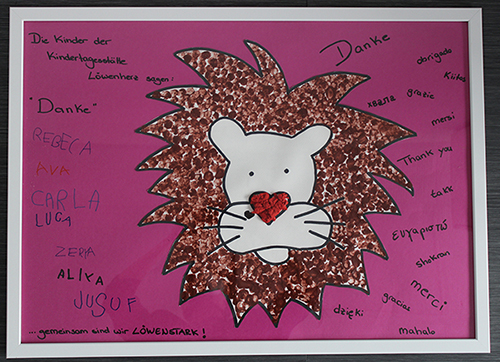 Die Kinder der
Kindertagesstätte
Löwenherz sagen:
"Danke"
REBECA
AVA
CARLA
LUCA
ZERIA
ALIYA
JUSUF
... gemeinsam sind wir LÖWENSTARK!
Danke
obrigado
Kiitos
хвала
grazie
mersi
Thank you
takk
ευχαριστώ
shokran
merci
gracias
dzięki
mahalo